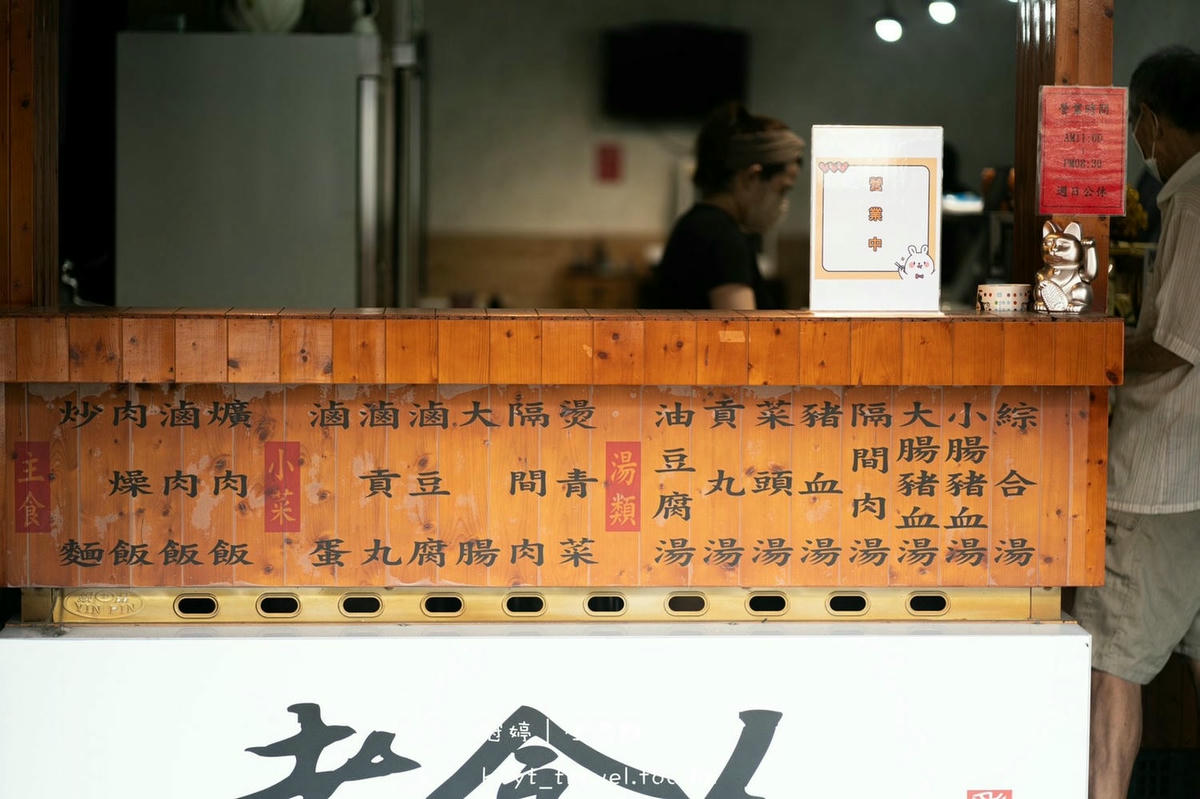 營業中
營業時間
AM11:00
PM08:30
週日公休
主食
炒麵
肉燥飯
滷肉飯
爌肉飯
小菜
滷蛋
滷貢丸
滷豆腐
大腸
隔間肉
燙青菜
湯類
油豆腐湯
貢丸湯
菜頭湯
豬血湯
隔間肉湯
大腸豬血湯
小腸豬血湯
綜合湯
YIN PIN